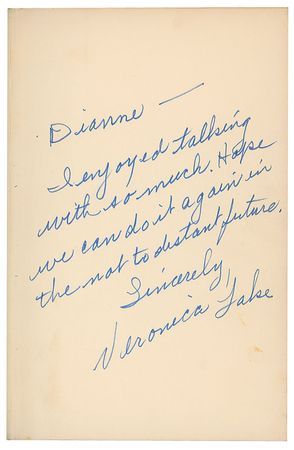 Dianne —
I enjoyed talking
with so much. Hope
we can do it again in
the not to distant future.
Sincerely,
Veronica Lake